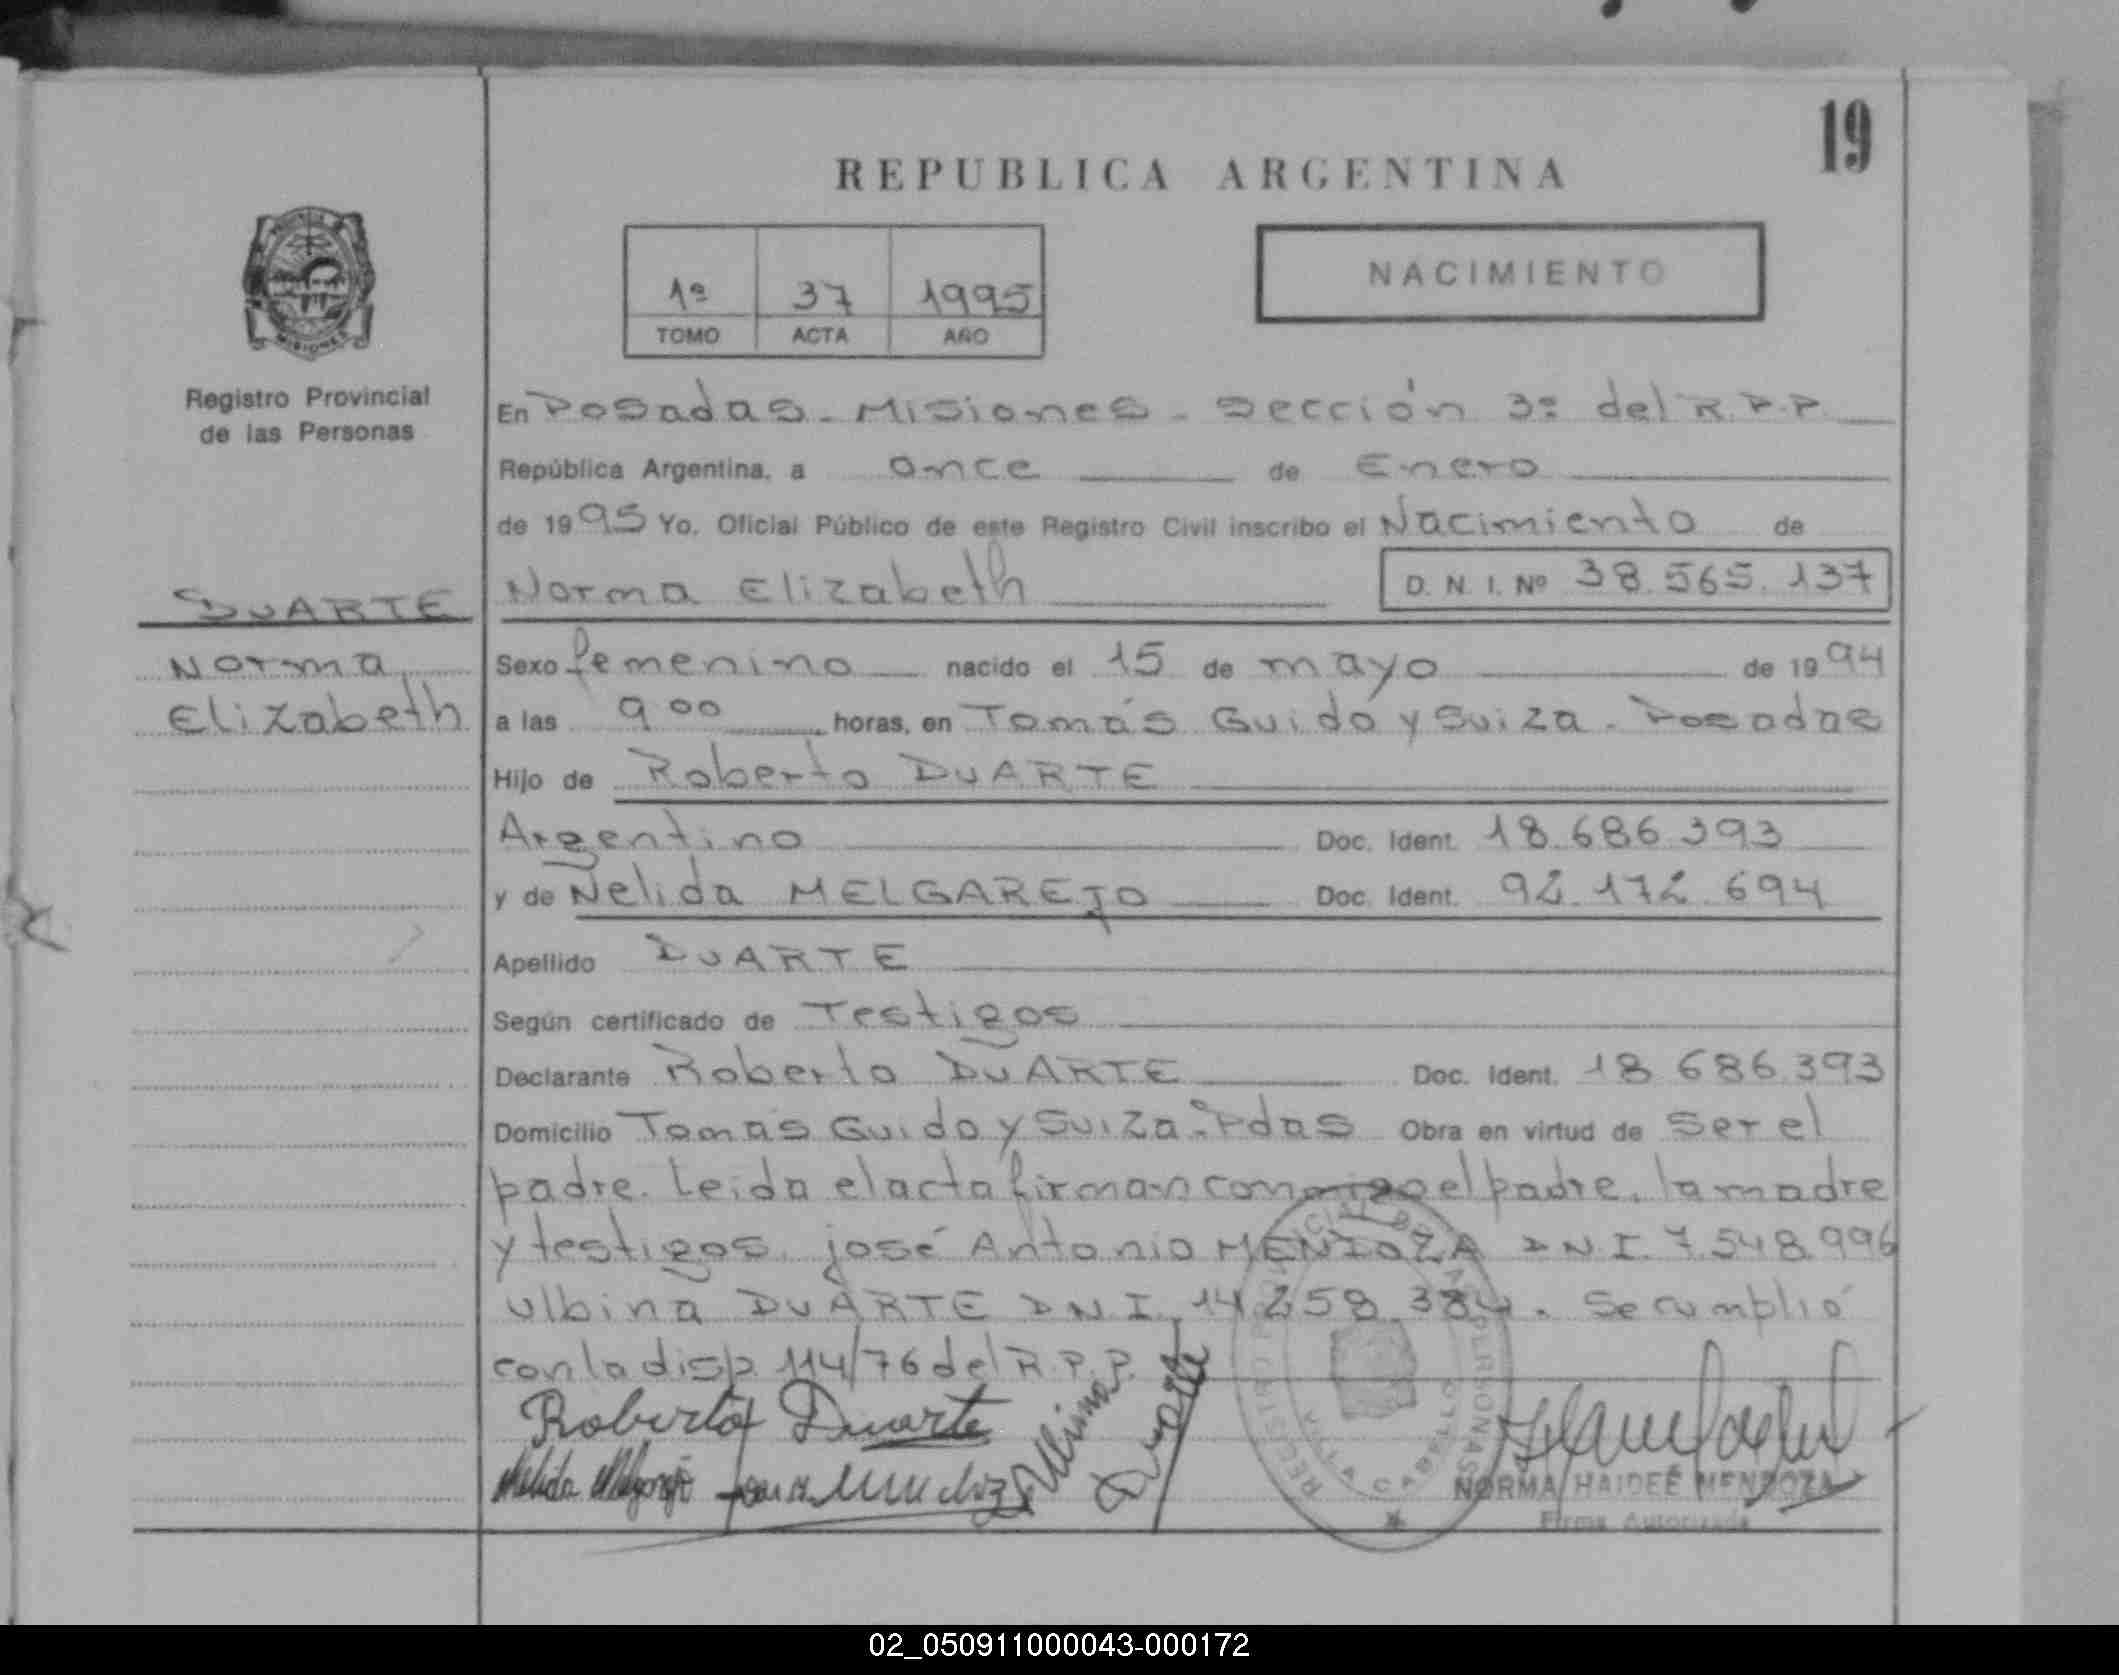 19
REPUBLICA ARGENTINA
1º 37 1995
TOMO ACTA AÑO
NACIMIENTO
MISIONES
Registro Provincial
de las Personas
En Posadas - Misiones - Sección 3º del R.P.P.
República Argentina, a once de Enero
de 1995 Yo, Oficial Público de este Registro Civil inscribo el Nacimiento de
DUARTE Norma Elizabeth D. N. I. Nº 38.565.137
Norma Sexo femenino nacido el 15 de mayo de 1994
Elizabeth a las 9 00 horas, en Tomás Guido y Suiza - Posadas
Hijo de Roberto DUARTE
Argentino Doc. Ident. 18.686.393
y de Nelida MELGAREJO Doc. Ident. 92.172.694
Apellido DUARTE
Según certificado de Testigos
Declarante Roberto DUARTE Doc. Ident. 18 686.393
Domicilio Tomás Guido y Suiza - Pdas Obra en virtud de ser el
padre. Leida el acta firman conmigo el padre, la madre
y testigos. josé Antonio MENDOZA D.N.I. 7.548.996
ulbina DUARTE D.N.I. 14.258.384. Se cumplió
con la disp. 114/76 del R.P.P.
Roberto Duarte
Nelida Melgarejo
Ulbina Duarte
REGISTRO PROVINCIAL DE LAS PERSONAS
VILLA CABELLO
NORMA HAIDEÉ MENDOZA
Firma Autorizada
02_050911000043-000172